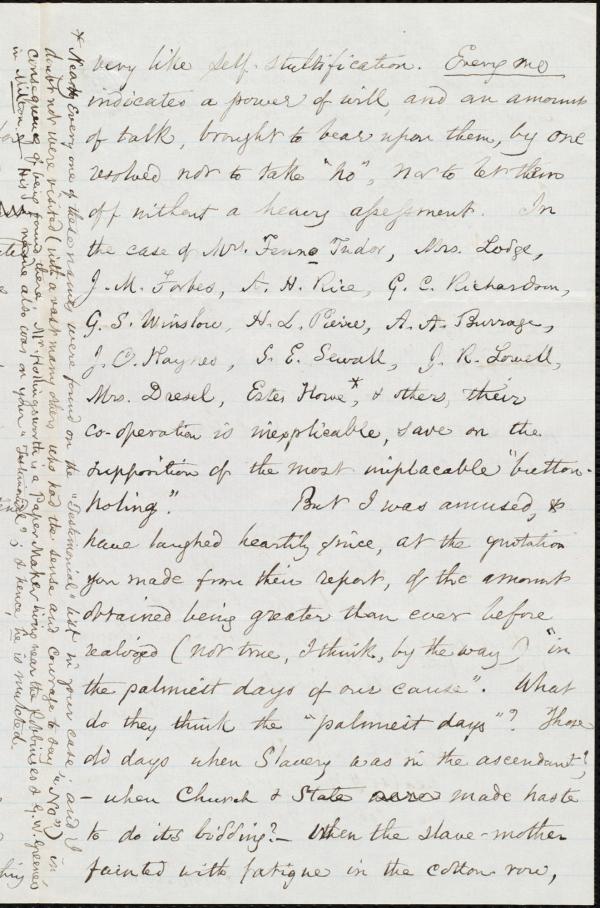 very like self-stultification. Every one
indicates a power of will, and an amount
of talk, brought to bear upon them, by one
resolved not to take "no", nor to let them
off without a heavy assessment. In
the case of Mrs. Fenno Tudor, Mrs. Lodge,
J. M. Forbes, A. H. Rice, G. C. Richardson,
G. S. Winslow, H. L. Pierce, A. A. Burrage,
J. C. Haynes, S. E. Sewall, J. R. Lowell,
Mrs. Dresel, Estes Howe,* & others, their
co-operation is inexplicable, save on the
supposition of the most implacable "button-
holing". But I was amused, &
have laughed heartily since, at the quotation
you made from their report, of the amount
obtained being greater than ever before
realized (not true, I think, by the way) "in
the palmiest days of our cause". What
do they think the "palmiest days"? Those
old days when Slavery was in the ascendant?
- when Church & State made haste
to do its bidding? - When the slave-mother
fainted with fatigue in the cotton row,
* Nearly every one of these names were found on the "Testimonial" list in your case, and I
doubt not were visited (with a vast many others who had the sense and courage to say "No") in
consequence of being found there. Mr. Hollingsworth is a Paper Maker living near the & G. W. Greene's
in Milton. His name also was on your "Testimonial"; & hence, he is mulcted.